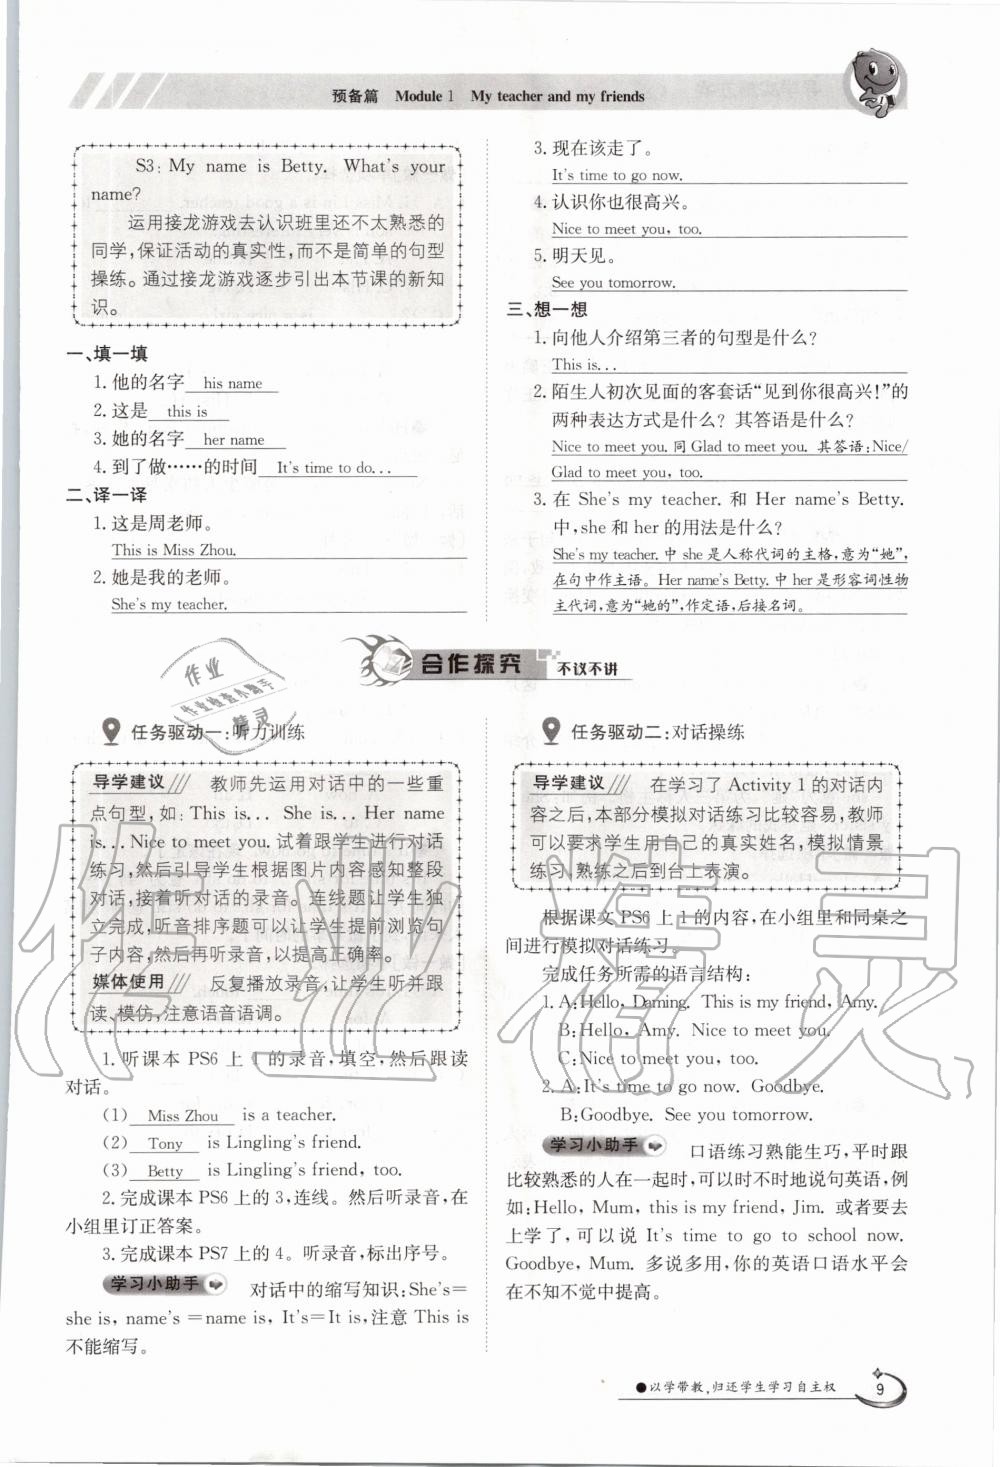 预备篇 Module 1 My teacher and my friends
S3: My name is Betty. What's your
name?
运用接龙游戏去认识班里还不太熟悉的
同学,保证活动的真实性,而不是简单的句型
操练。通过接龙游戏逐步引出本节课的新知
识。
一、填一填
1. 他的名字 his name
2. 这是 this is
3. 她的名字 her name
4. 到了做……的时间 It's time to do...
二、译一译
1. 这是周老师。
This is Miss Zhou.
2. 她是我的老师。
She's my teacher.
3. 现在该走了。
It's time to go now.
4. 认识你也很高兴。
Nice to meet you, too.
5. 明天见。
See you tomorrow.
三、想一想
1. 向他人介绍第三者的句型是什么?
This is...
2. 陌生人初次见面的客套话“见到你很高兴!”的
两种表达方式是什么? 其答语是什么?
Nice to meet you. 同 Glad to meet you. 其答语:Nice/
Glad to meet you, too.
3. 在 She's my teacher. 和 Her name's Betty.
中,she 和 her 的用法是什么?
She's my teacher. 中 she 是人称代词的主格,意为“她”,
在句中作主语。Her name's Betty. 中 her 是形容词性物
主代词,意为“她的”,作定语,后接名词。
合作探究 不议不讲
任务驱动一:听力训练
导学建议 教师先运用对话中的一些重
点句型,如: This is... She is... Her name
is... Nice to meet you. 试着跟学生进行对话
练习,然后引导学生根据图片内容感知整段
对话,接着听对话的录音。连线题让学生独
立完成,听音排序题可以让学生提前浏览句
子内容,然后再听录音,以提高正确率。
媒体使用 反复播放录音,让学生听并跟
读、模仿,注意语音语调。
1. 听课本 PS6 上 1 的录音,填空,然后跟读
对话。
(1) Miss Zhou is a teacher.
(2) Tony is Lingling's friend.
(3) Betty is Lingling's friend, too.
2. 完成课本 PS6 上的 3,连线。然后听录音,在
小组里订正答案。
3. 完成课本 PS7 上的 4。听录音,标出序号。
学习小助手 对话中的缩写知识:She's=
she is, name's =name is, It's=It is,注意 This is
不能缩写。
任务驱动二:对话操练
导学建议 在学习了 Activity 1 的对话内
容之后,本部分模拟对话练习比较容易,教师
可以要求学生用自己的真实姓名,模拟情景
练习,熟练之后到台上表演。
根据课文 PS6 上 1 的内容,在小组里和同桌之
间进行模拟对话练习。
完成任务所需的语言结构:
1. A:Hello, Daming. This is my friend, Amy.
B:Hello, Amy. Nice to meet you.
C:Nice to meet you, too.
2. A:It's time to go now. Goodbye.
B:Goodbye. See you tomorrow.
学习小助手 口语练习熟能生巧,平时跟
比较熟悉的人在一起时,可以时不时地说句英语,例
如:Hello, Mum, this is my friend, Jim. 或者要去
上学了,可以说 It's time to go to school now.
Goodbye, Mum. 多说多用,你的英语口语水平会
在不知不觉中提高。
●以学带教,归还学生学习自主权 9
作业
作业检查小助手
精灵
作业精灵